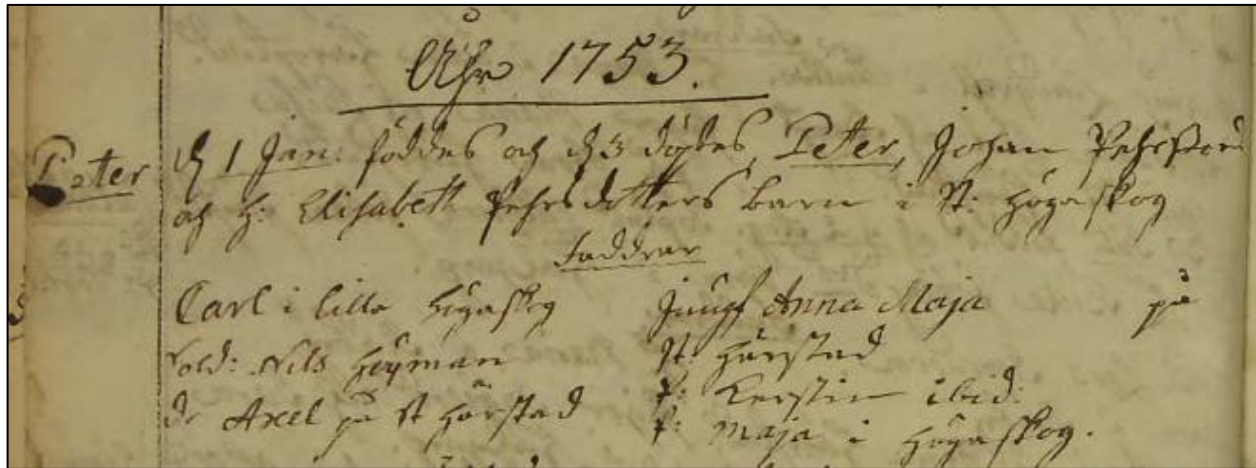 Åhr 1753.
Peter
d 1 Jan: föddes och d 3 döptes, Peter, Johan Pehrssons
och H: Elisabeth Pehrsdotters barn i St: Högaskog
Faddrar
Carl i lilla Högaskog
Sold: Nils Höyman
dr Axel på St Härstad
Jungf Anna Maja på
St: Härstad
P: Kerstin ibid:
P: Maja i Högaskog.